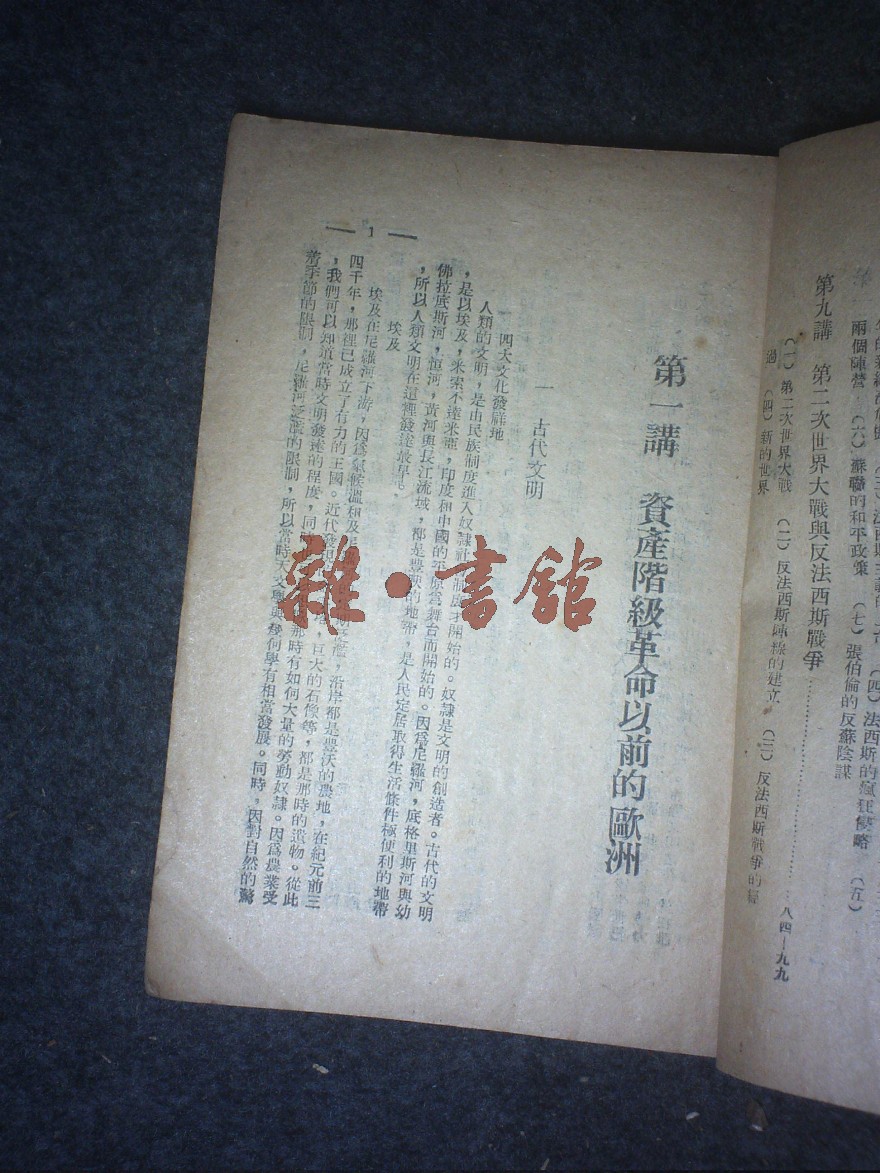 兩個陣營 (六)蘇聯的和平政策 (七)張伯倫的反蘇陰謀
第九講 第二次世界大戰與反法西斯戰爭………………八四—九九
(一)第二次世界大戰 (二)反法西斯陣線的建立 (三)反法西斯戰爭的經
過 (四)新的世界
第一講 資產階級革命以前的歐洲
一 古代文明
四大文化發祥地
人類的文明,是由民族制度進入奴隸社 制度才開始的。奴隸是文明的創造者。古代的文明
,是以埃及,米索不達米亞,印度和中國的平原為舞台而開始的。因為尼羅河,底格里斯河與幼
佛拉底斯河,恒河,黃河與長江流域,都是豐畝的地帶,是人民定居取得生活條件極便利的地帶
,所以人類文明在這裡發達最早。
埃及
埃及在尼羅河下游,因為氣候溫和及尼 期泛濫,沿岸都是豐沃的農地,在紀元前三
四千年,那裡已成立了有力的王國。近代發 ,巨大的石像等,都是那時的遺物。從此
,我們可以知道當時文明發達的程度,同時 那時有如何大量的勞動奴隸。因為農業受
着季節的限制,尼羅河泛濫的限制,所以當時天文學與幾何學有相當發展。同時,因對自然的驚
1
雜·書館